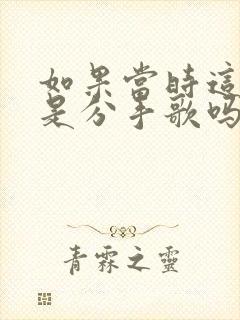 如果當時這
是分手歌吗
青霖之靈